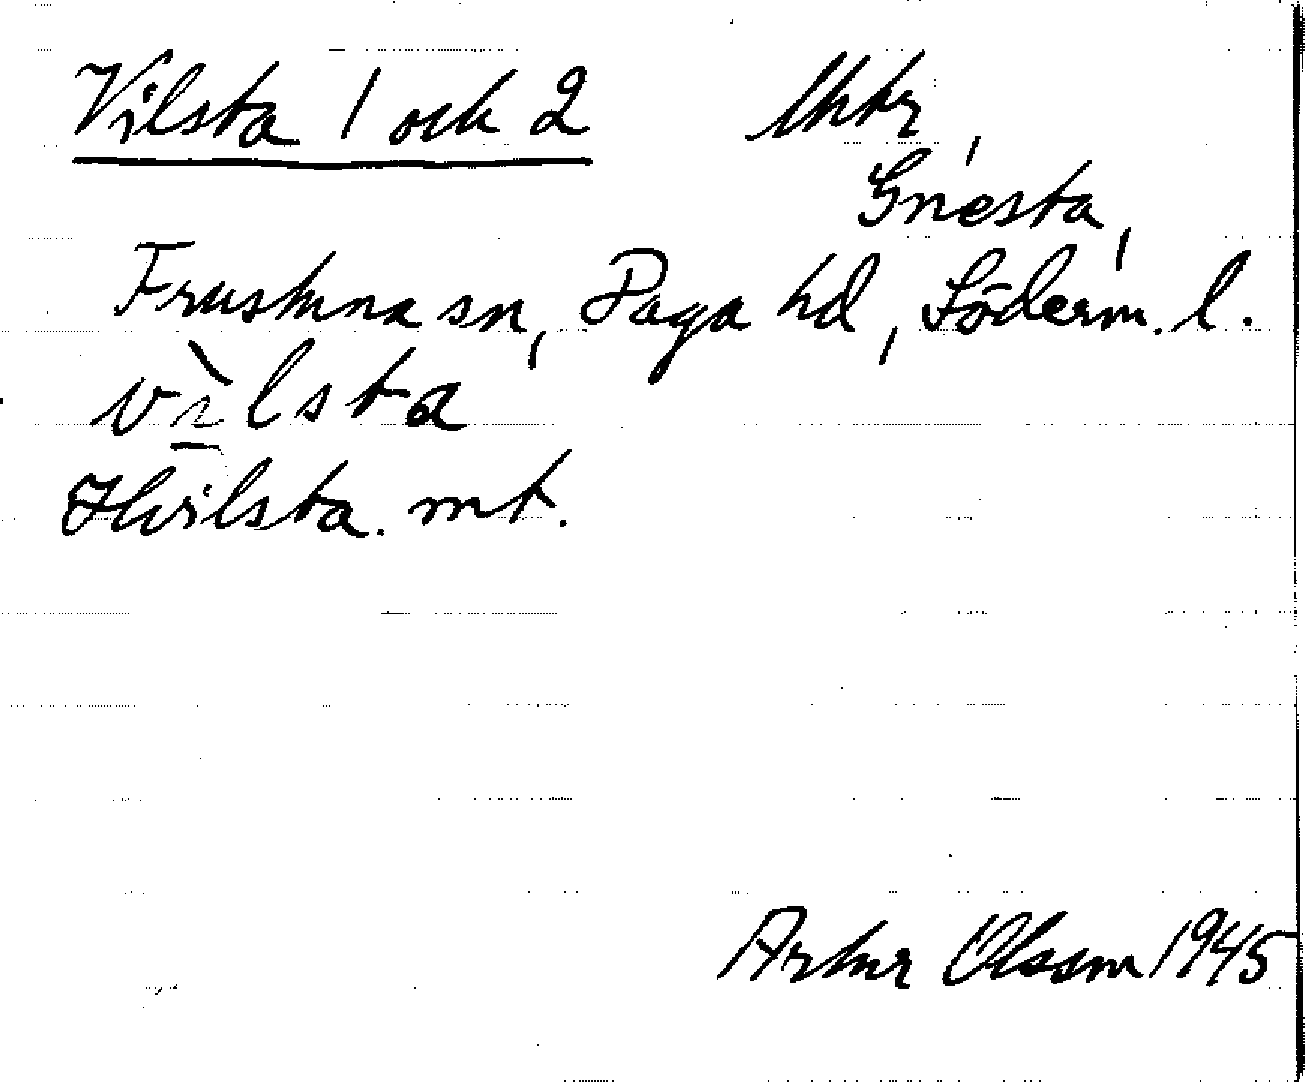 Vilsta 1 och 2
Ukkr,
Gnesta,
Frustuna sn, Daga hd, Söderm. l.
vìlsta
Hvilsta. mt.
Artur Olsson 1945